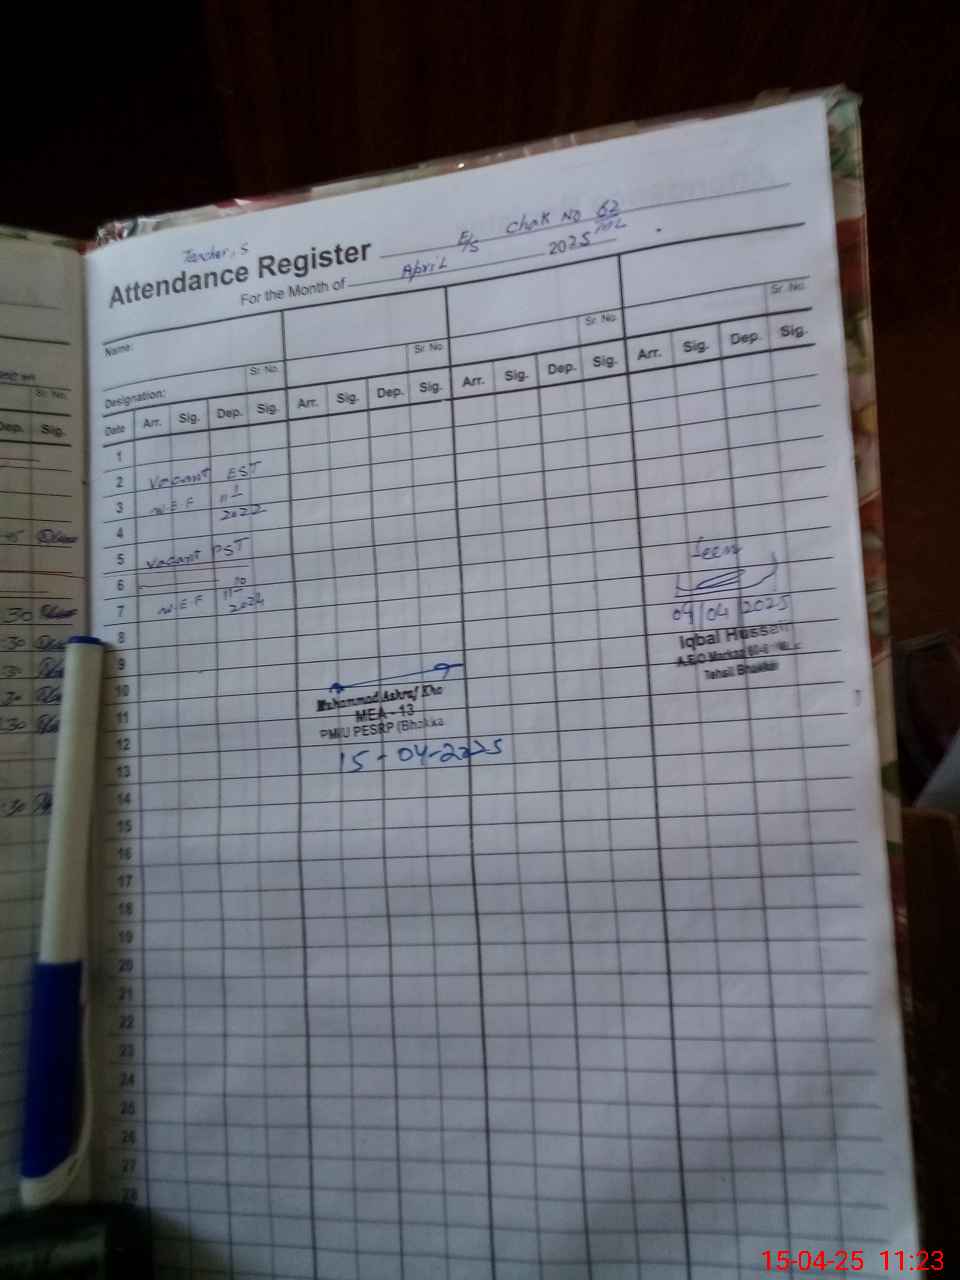 Teacher,s
Attendance Register E/S Chak No 62/ML
For the Month of April 2025
Name:
Sr. No. Sr. No. Sr. No. Sr. No.
Designation:
Date Arr. Sig. Dep. Sig. Arr. Sig. Dep. Sig. Arr. Sig. Dep. Sig. Arr. Sig. Dep. Sig.
1
2 Vacant EST
3 W.E.F
4 2022
5 Vacant PST
6
7 W.E.F 2024
8
9
10
11
12
13
14
15
16
17
18
19
20
21
22
23
24
25
26
27
28
Seen
04/04/2025
Iqbal Hussain
A.E.O Markaz
Tehsil Bhakkar
Muhammad Ashraf Kha
MEA - 13
PMIU PESRP (Bhakka
15-04-2025
Sr. No.
Dep. Sig.
30
:30
:30
:30
:30
:30
15-04-25 11:23